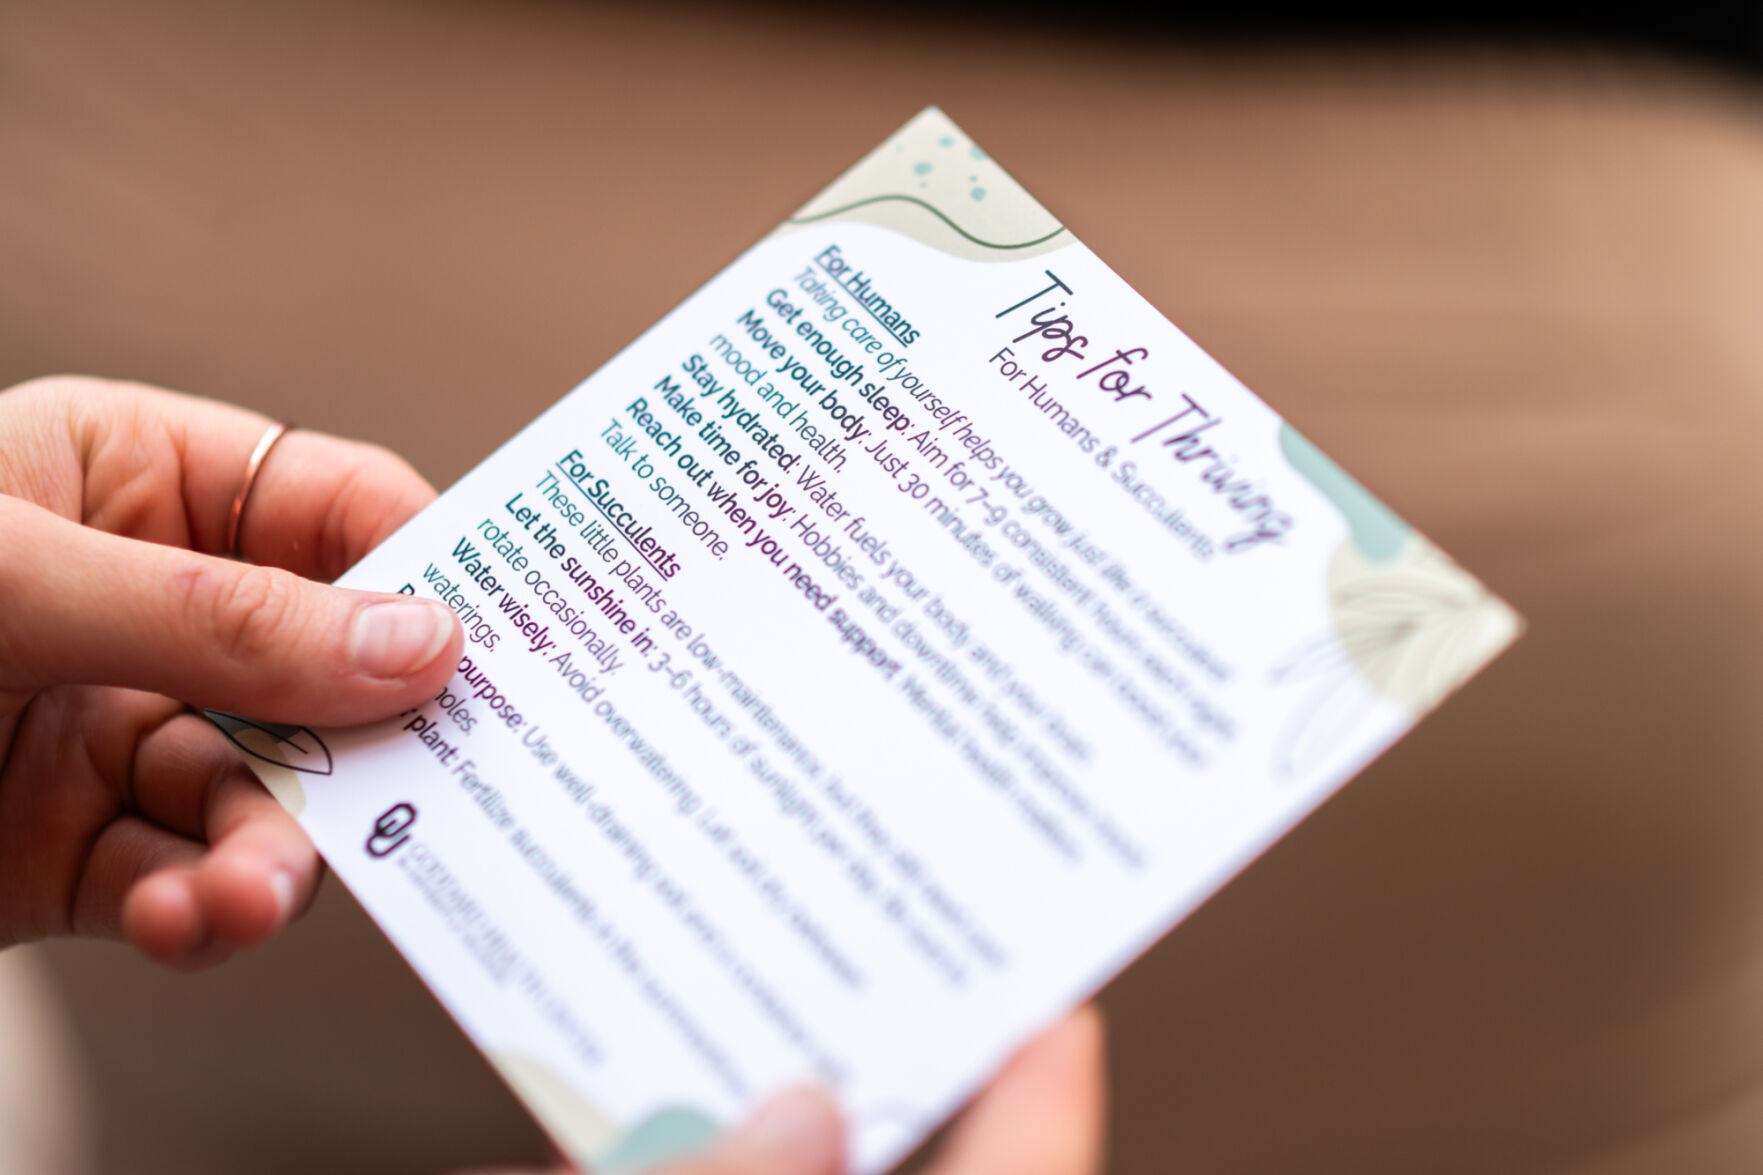 Tips for Thriving
For Humans & Succulents
For Humans
Taking care of yourself helps you grow just like a succulent.
Get enough sleep: Aim for 7-9 consistent hours each night.
Move your body: Just 30 minutes of walking can boost your
mood and health.
Stay hydrated: Water fuels your body and your brain.
Make time for joy: Hobbies and downtime help
Reach out when you need support. Mental health matters.
Talk to someone.
For Succulents
These little plants are low-maintenance, but they still need
Let the sunshine in: 3-6 hours of sunlight per day.
rotate occasionally.
Water wisely: Avoid overwatering. Let soil dry between
waterings.
purpose: Use well-draining soil and a container with
holes.
plant: Fertilize succulents in the
OU
GODDARD HEALTH CENTER